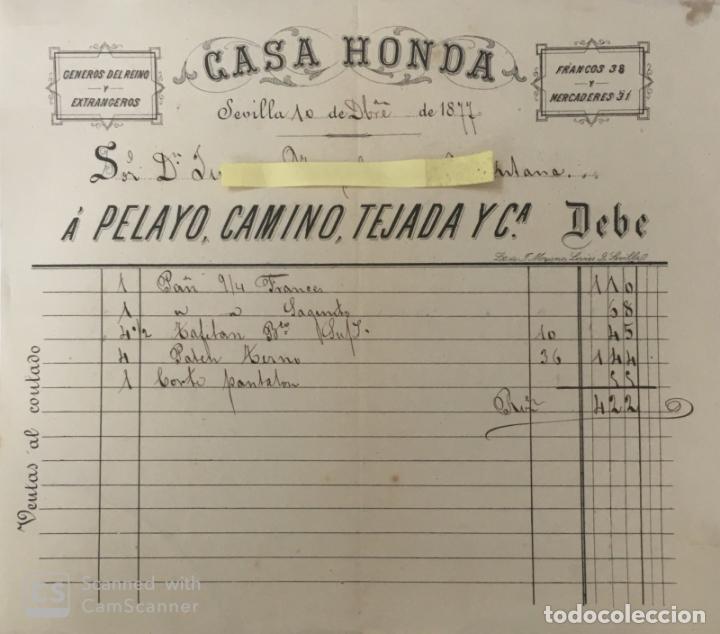 CASA HONDA
GENEROS DEL REINO
Y
EXTRANGEROS
FRANCOS 38
Y
MERCADERES 31
Sevilla 10 de Dbre de 1877
Sor Dn
á PELAYO, CAMINO, TEJADA Y Cª. Debe
Lit. de J. Moyano Sevilla
1 Pañ 9/4 Frances 110
1 " " 68
4 1/2 Tafetan 10 45
4 Paten 36 144
1 Corte pantalon 55
422
Ventas al contado
CS Scanned with
CamScanner
todocoleccion